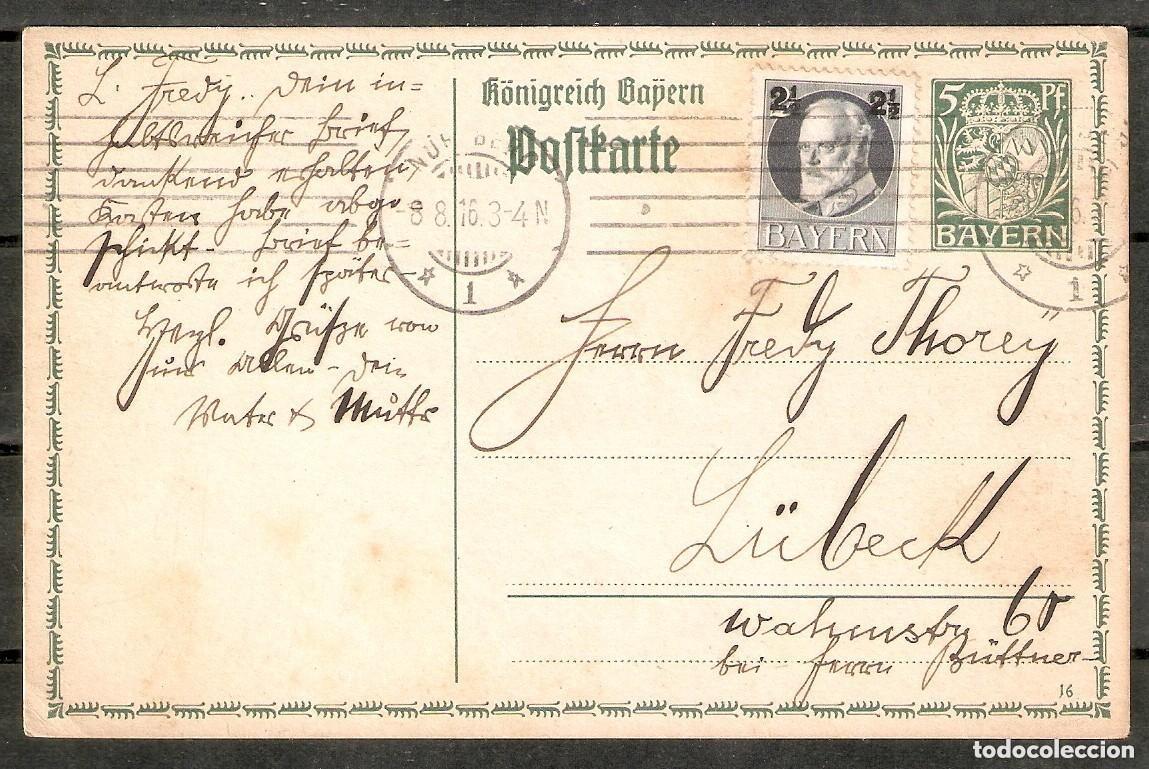 L. Fredy. Dein in=
haltsreicher Brief
dankend erhalten,
Kasten habe abge
schickt - Brief be=
antworte ich später -
Herzl. Grüsze von
uns Allen - Dein
Vater & Mutter
Königreich Bayern
Postkarte
2½ 2½
BAYERN
5 Pf.
BAYERN
NÜRNBERG
-8.8.16.3-4N
1
1
Herrn Fredy Thorey
Lübeck
Wahmstr 60
bei Herrn Büttner
16
todocoleccion